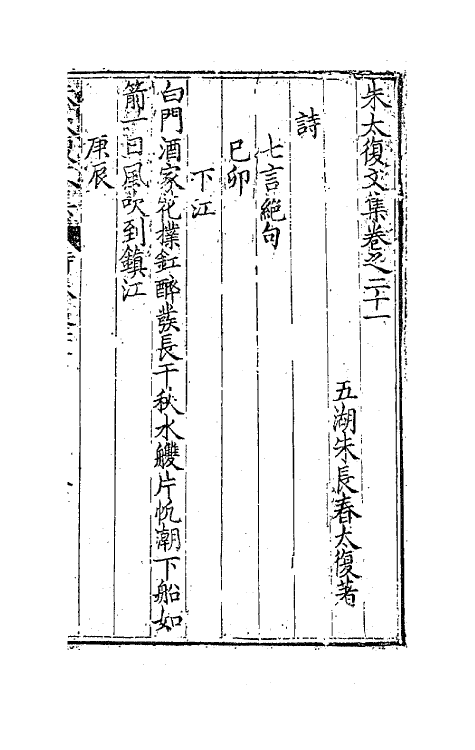 朱太復文集卷之二十一
五湖朱長春太復著
詩
七言絕句
己卯
下江
白門酒家花撲缸醉發長干秋水艭片帆潮下船如
箭一日風吹到鎮江
庚辰